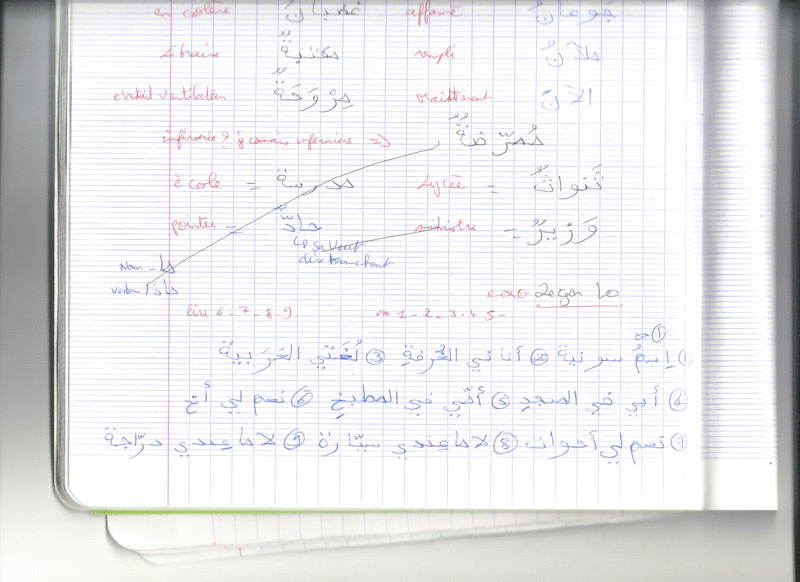 en colère غضبان affamé جَوعانٌ
مكتبةٌ rempli ملآنٌ
éventail ventilateur مِرْوَحَةٌ maintenant الآنَ
infirmière ? jamais infirmière => مُمَرِّضَةٌ
école = مدرسة Lycée =
pointu = حادٌّ ministre = وَزيرٌ
↳ qui veut dire tranchant
nom - ها
verbe
exo Leçon 10
lire 6-7-8-9. 1-2-3-4-5-
① إسمُ سونية ② أنا في الغُرفةِ ③ لُغَتي العَرَبيةُ
④ أبي في المسجدِ ⑤ أمّي في المطبخِ ⑥ نعم لي أخ
⑦ نعم لي أخوات ⑧ لا ما عِندي سيّارة ⑨ لا ما عِندي درّاجة